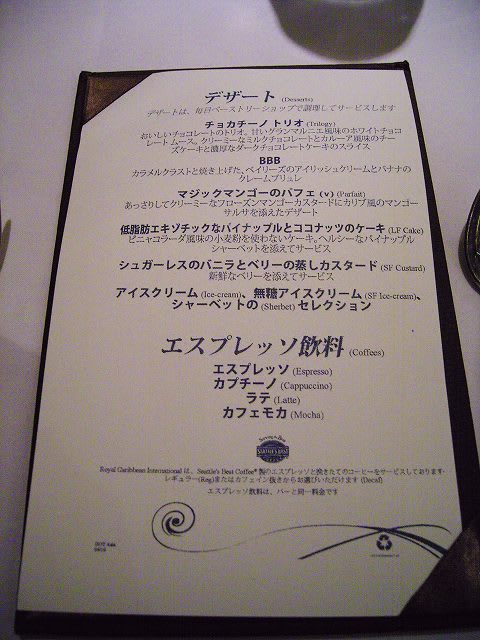 デザート (Desserts)
デザートは、毎日ペーストリーショップで調理してサービスします
チョカチーノ トリオ (Trilogy)
おいしいチョコレートのトリオ。甘いグランマルニエ風味のホワイトチョコ
レート ムース。クリーミーなミルクチョコレートとカルーア風味のチー
ズケーキと濃厚なダークチョコレートケーキのスライス
BBB
カラメルクラストと焼き上げた、ベイリーズのアイリッシュクリームとバナナの
クレームブリュレ
マジックマンゴーのパフェ (v) (Parfait)
あっさりしてクリーミーなフローズンマンゴーカスタードにカリブ風のマンゴー
サルサを添えたデザート
低脂肪エキゾチックなパイナップルとココナッツのケーキ (LF Cake)
ピニャコラーダ風味の小麦粉を使わないケーキ。ヘルシーなパイナップル
シャーベットを添えてサービス
シュガーレスのバニラとベリーの蒸しカスタード (SF Custard)
新鮮なベリーを添えてサービス
アイスクリーム (Ice-cream)、無糖アイスクリーム (SF Ice-cream)、
シャーベットの (Sherbet) セレクション
エスプレッソ飲料 (Coffees)
エスプレッソ (Espresso)
カプチーノ (Cappuccino)
ラテ (Latte)
カフェモカ (Mocha)
SEATTLE'S BEST
Royal Caribbean International は、Seattle's Best Coffee® 製のエスプレッソと挽きたてのコーヒーをサービスしております。
レギュラー(Reg)またはカフェイン抜きからお選びいただけます (Decaf)
エスプレッソ飲料は、バーと同一料金です